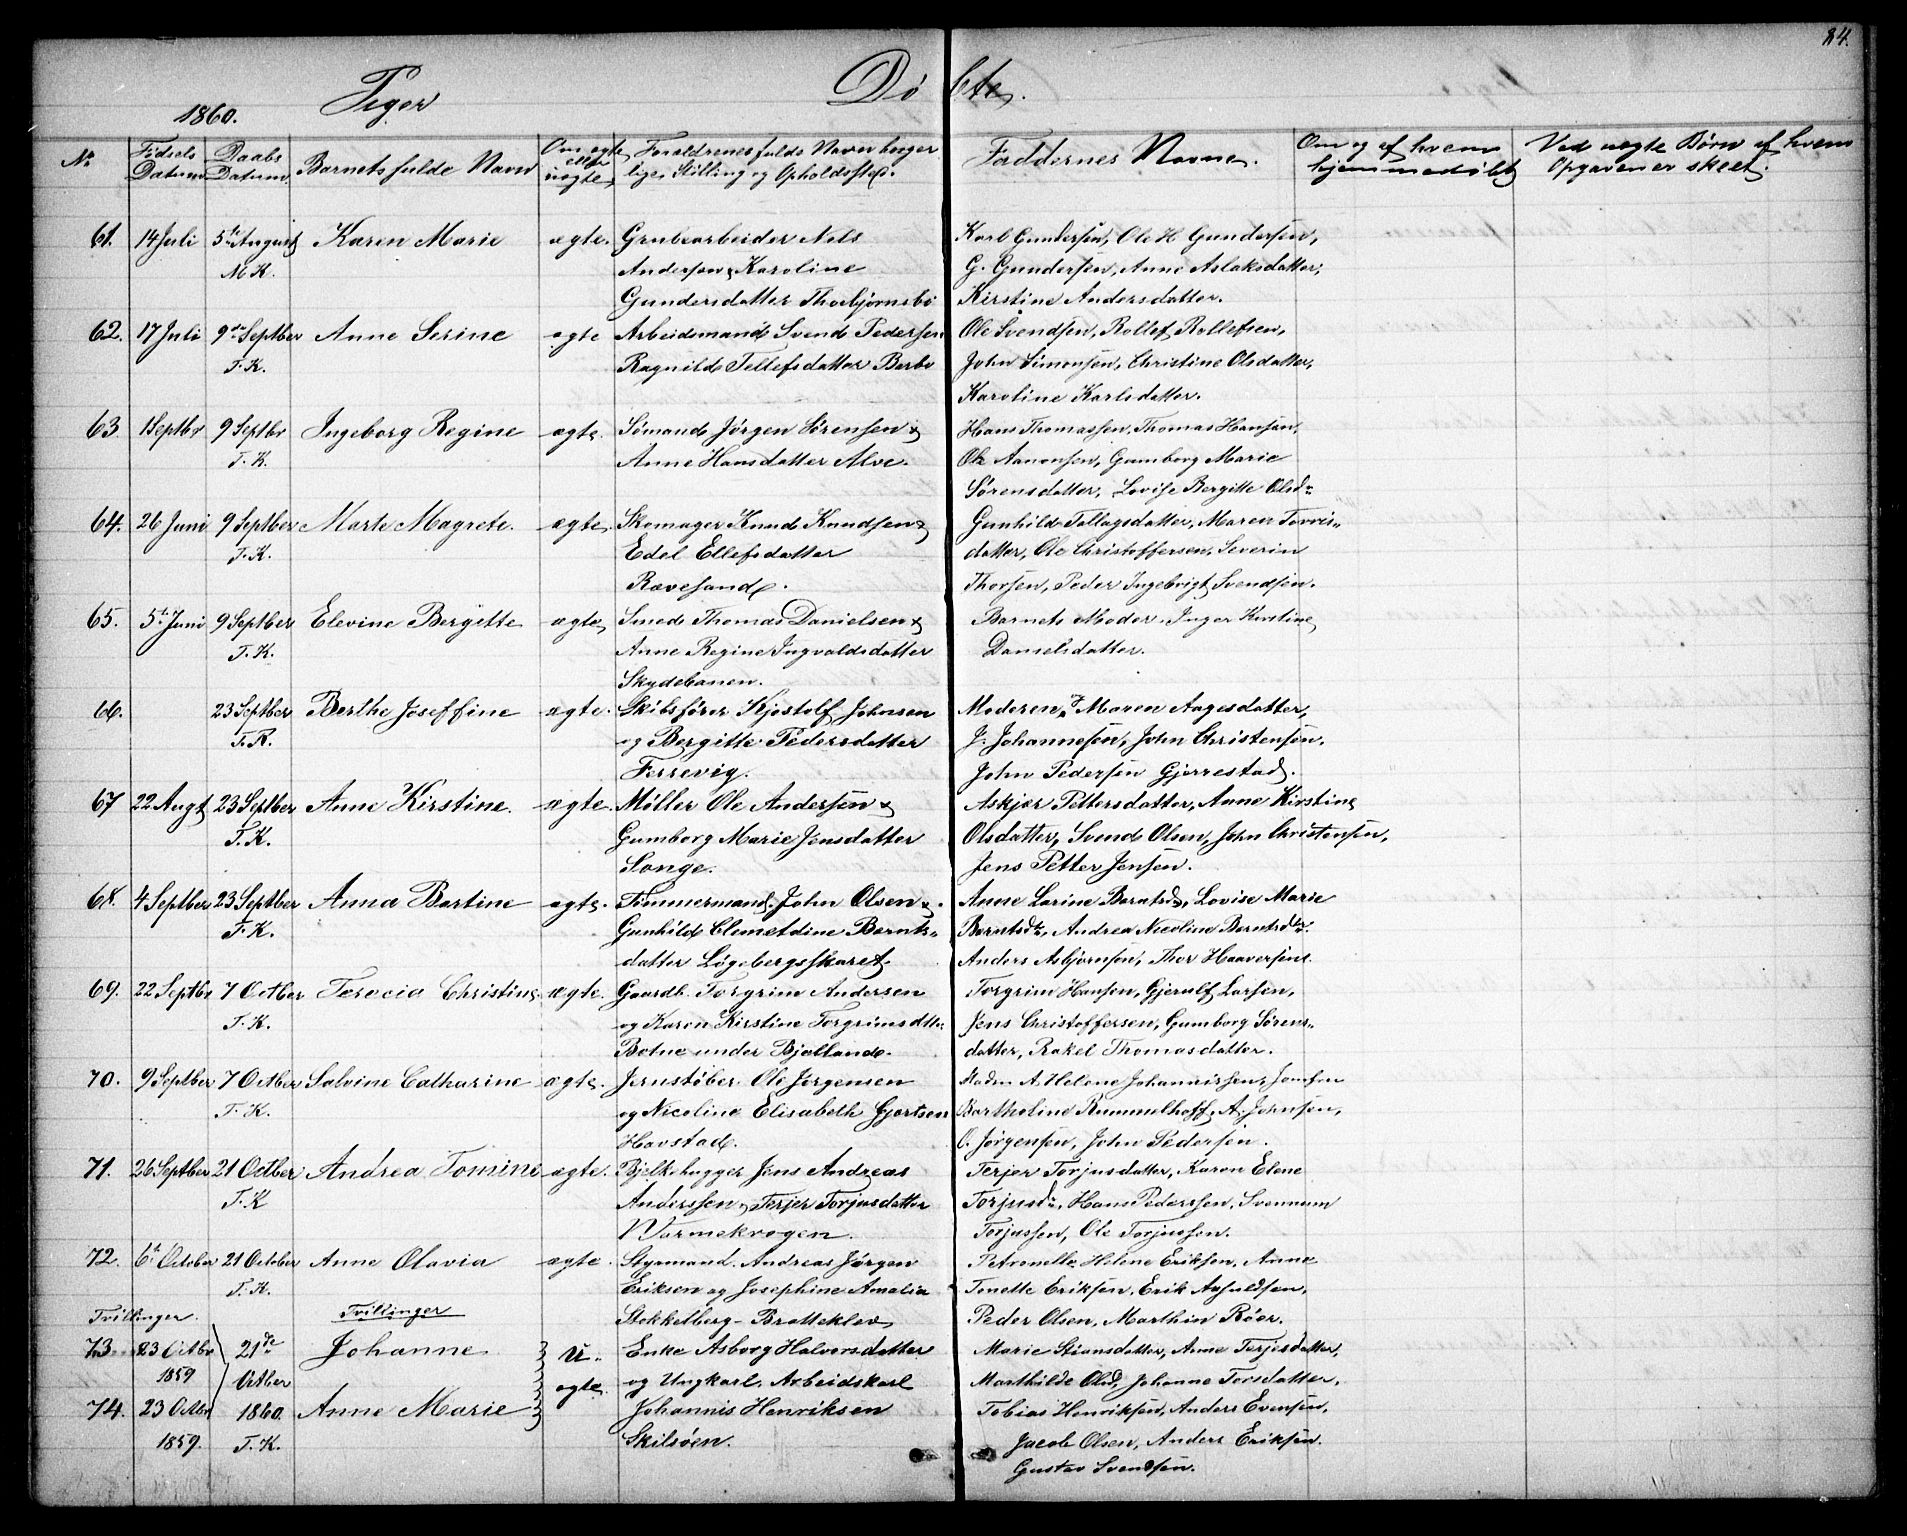 84.
1860. Piger Døbte.
No
Fødsels Datum
Daabs Datum
Barnets fulde Navn
Om ægte eller uægte
Forældrenes fulde Navn borgerlige Stilling og Opholdssted.
Faddernes Navne.
Om og af hvem hjemmedøbt
Ved uægte Børn af hvem Opgaven er skeet.
61. 14 Juli 5te August Karen Marie ægte. Grubearbeider Nels Karl Gundersen, Ole H Gundersen,
M K. Andersen & Karoline G. Gundersen, Anne Aslaksdatter,
Gundersdatter Thorbjørnsbo Kirstine Andersdatter.
62. 17 Juli 9de Septber Anne Serine ægte Arbeidsmand Svend Pedersen Ole Svendsen, Rollef Rollefsen,
T. K. Ragnild Tellefsdatter Berbo John Simonsen, Christine Olsdatter,
Karoline Karlsdatter.
63 1 Septbr 9 Septbr Ingeborg Regine ægte. Sømand Jørgen Sørensen & Hans Thomassen, Thomas Hansen,
T. K. Anne Hansdatter Alve. Ole Aanonsen, Gumborg Marie
Sørensdatter, Lovise Bergitte Olsdr
64. 26 Juni 9 Septber Marte Magrete. ægte. Skomager Knud Knudsen & Gunhild Tallagsdatter, Maren Torris-
T. K. Edel Ellefsdatter datter, Ole Christoffersen, Severin
Rævesand. Thorsen, Peder Ingebrigt Svendsen.
65. 5te Juni 9 Septber Elevine Bergitte ægte, Smed Thomas Danielsen & Barnets Moder, Inger Kirstine
T. K. Anne Regine Ingvaldsdatter Danielsdatter.
Skydebanen.
66. 23 Septber Berthe Joseffine ægte. Skibsfører Kjostolf Johnsen Moderen, Maren Aagesdatter,
T. K. og Bergitte Pedersdatter J. Johannesen, John Christensen,
Ferrevig. John Pedersen Gjerrestad.
67 22 Augt 23 Septber Anne Kirstine. ægte. Møller Ole Andersen & Askjer Pettersdatter, Anne Kirstine
T. K. Gumborg Marie Jensdatter Olsdatter, Svend Olsen, John Christensen,
Songe. Jens Petter Jensen.
68. 4 Septber 23 Septber Anna Bartine ægte. Tømmermand John Olsen & Anne Larine Berntsd, Lovise Marie
T. K. Gunhild Clemetdine Bernts- Berntsdtr, Andrea Nicoline Berntsdtr.
datter Løgebergsskaret. Anders Asbjørnsen, Thor Haaversen.
69. 22 Septbr 7 Octber Teracia Christine. ægte. Gaardb. Torgrim Andersen Torgrim Hansen, Gjerulf Larsen,
T. K. og Karen Kirstine Torgrimsdtter Jens Christoffersen, Gumborg Sørens-
Botne under Bjelland. datter, Rakel Thomasdatter.
70. 9 Septber 7 Octber Salvine Catharine ægte. Jernstøber Ole Jørgensen Madm A. Helene Johannissen, Jomfru
T. K. og Nicoline Elisabeth Gjertsen Bartholine Rummelhoff, A. Johnsen,
Havstad. O. Jørgensen, John Pedersen.
71. 26 Septber 21 Octber Andrea Tomine ægte. Bjelkehugger Jens Andreas Terjer Torjusdatter, Karen Elene
T. K Anderssen, Terjer Torjusdatter Torjusdr, Hans Pederssen, Svennum
Varmekrogen. Torjussen, Ole Torjussen.
72. 6te October 21 October Anne Olavia ægte. Styrmand. Andreas Jørgen Petronelle Helene Eriksen, Anne
T. K. Eriksen og Josephine Amalia Tonette Eriksen, Erik Asfuldsen,
Tvillinger. Tvillinger Stokkelberg - Bratteklev Peder Olsen, Marthin Röer.
73 23 Octbr 21de Johanne U- Enke Asborg Halvorsdatter Marie Stiansdatter, Anne Terjesdatter,
1859 Octber ægte. og Ungkarl. Arbeidskarl Marthilde Olsd, Johanne Torsdatter,
74. 23 Octbr 1860. Anne Marie Johannis Henriksen Tobias Henriksen, Anders Evensen,
1859. T. K. Skilsøen. Jacob Olsen, Anders Eriksen.
Gustav Svendsen.